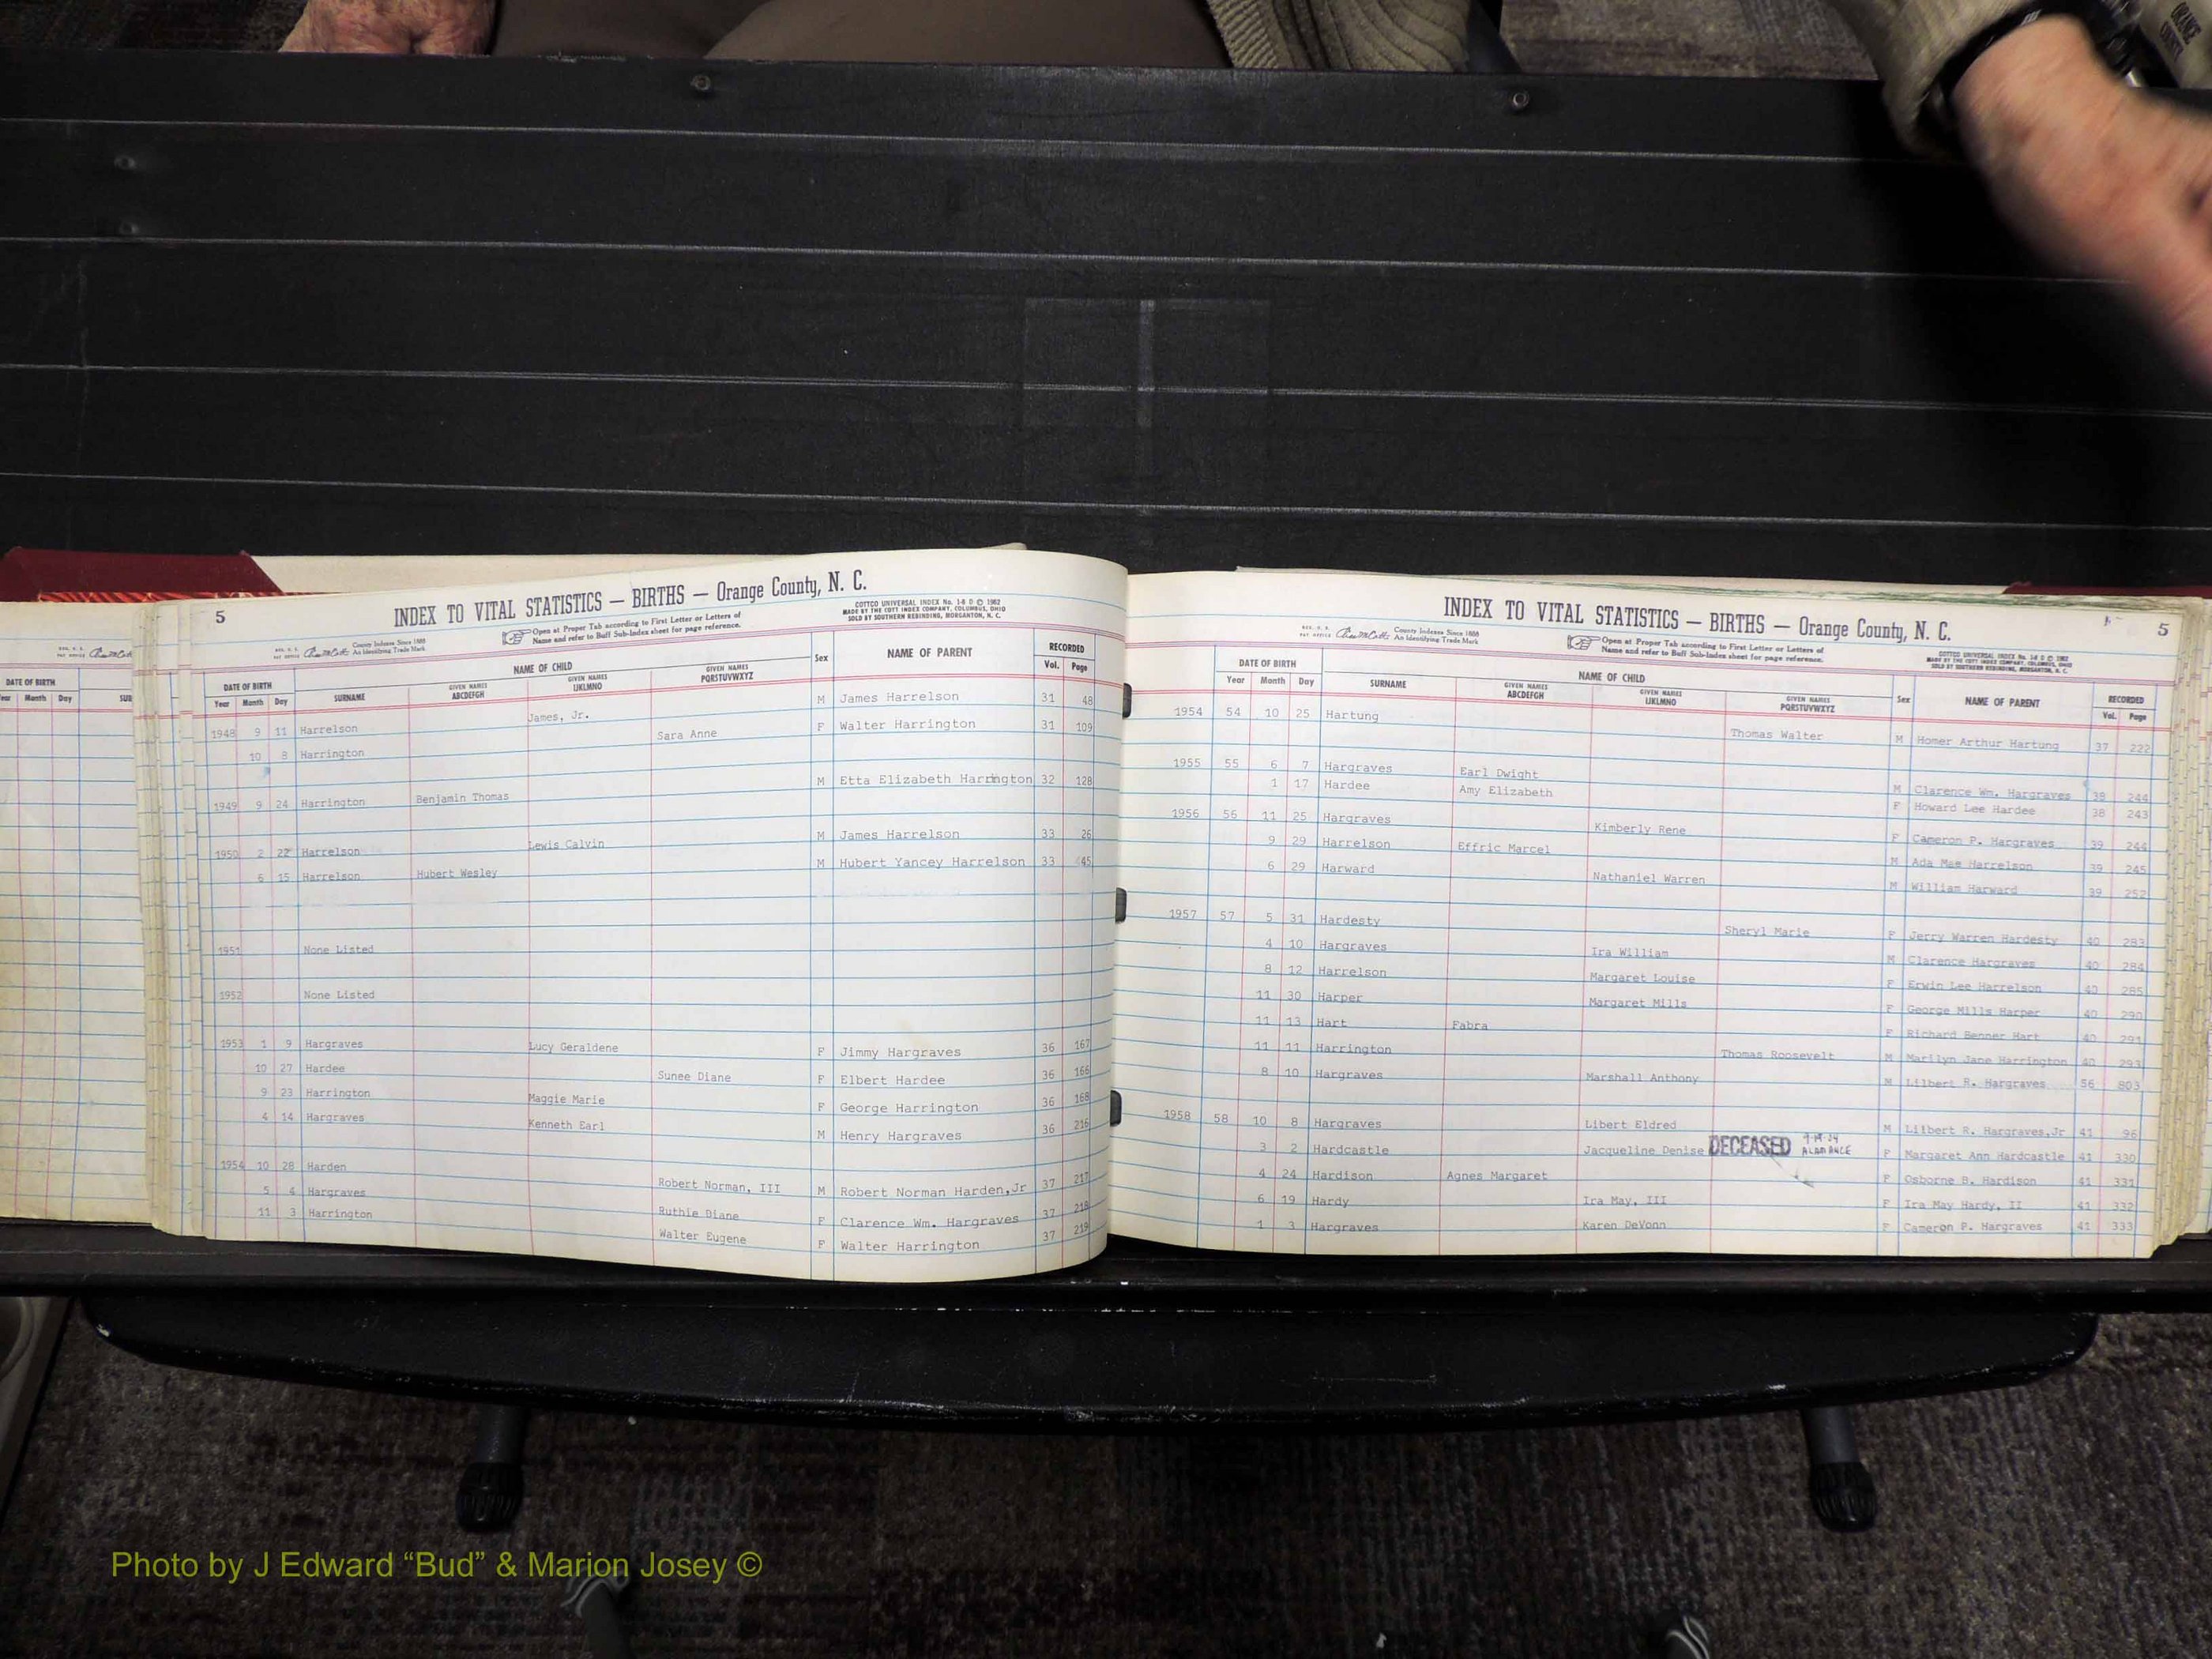 ORANGE
COUNTY
DATE OF BIRTH
Year Month Day SUR
5
INDEX TO VITAL STATISTICS — BIRTHS — Orange County, N. C.
County Indexes Since 1888
An Identifying Trade Mark
Open at Proper Tab according to First Letter or Letters of
Name and refer to Buff Sub-Index sheet for page reference.
COTTCO UNIVERSAL INDEX No. 1-8 D © 1962
MADE BY THE COTT INDEX COMPANY, COLUMBUS, OHIO
SOLD BY SOUTHERN REBINDING, MORGANTON, N. C.
DATE OF BIRTH NAME OF CHILD Sex NAME OF PARENT RECORDED
Year Month Day SURNAME GIVEN NAMES ABCDEFGH GIVEN NAMES IJKLMNO GIVEN NAMES PQRSTUVWXYZ Vol. Page
1948 9 11 Harrelson James, Jr. M James Harrelson 31 48
10 8 Harrington Sara Anne F Walter Harrington 31 109
1949 9 24 Harrington Benjamin Thomas M Etta Elizabeth Harrington 32 128
1950 2 22 Harrelson Lewis Calvin M James Harrelson 33 26
6 15 Harrelson Hubert Wesley M Hubert Yancey Harrelson 33 45
1951 None Listed
1952 None Listed
1953 1 9 Hargraves Lucy Geraldene F Jimmy Hargraves 36 167
10 27 Hardee Sunee Diane F Elbert Hardee 36 166
9 23 Harrington Maggie Marie F George Harrington 36 168
4 14 Hargraves Kenneth Earl M Henry Hargraves 36 216
1954 10 28 Harden Robert Norman, III M Robert Norman Harden,Jr 37 217
5 4 Hargraves Ruthie Diane F Clarence Wm. Hargraves 37 218
11 3 Harrington Walter Eugene F Walter Harrington 37 219
INDEX TO VITAL STATISTICS — BIRTHS — Orange County, N. C.
5
County Indexes Since 1888
An Identifying Trade Mark
Open at Proper Tab according to First Letter or Letters of
Name and refer to Buff Sub-Index sheet for page reference.
COTTCO UNIVERSAL INDEX No. 1-8 D © 1962
MADE BY THE COTT INDEX COMPANY, COLUMBUS, OHIO
SOLD BY SOUTHERN REBINDING, MORGANTON, N. C.
DATE OF BIRTH NAME OF CHILD Sex NAME OF PARENT RECORDED
Year Month Day SURNAME GIVEN NAMES ABCDEFGH GIVEN NAMES IJKLMNO GIVEN NAMES PQRSTUVWXYZ Vol. Page
1954 54 10 25 Hartung Thomas Walter M Homer Arthur Hartung 37 222
1955 55 6 7 Hargraves Earl Dwight M Clarence Wm. Hargraves 38 244
1 17 Hardee Amy Elizabeth F Howard Lee Hardee 38 243
1956 56 11 25 Hargraves Kimberly Rene F Cameron P. Hargraves 39 244
9 29 Harrelson Effric Marcel M Ada Mae Harrelson 39 245
6 29 Harward Nathaniel Warren M William Harward 39 252
1957 57 5 31 Hardesty Sheryl Marie F Jerry Warren Hardesty 40 283
4 10 Hargraves Ira William M Clarence Hargraves 40 284
8 12 Harrelson Margaret Louise F Erwin Lee Harrelson 40 285
11 30 Harper Margaret Mills F George Mills Harper 40 290
11 13 Hart Fabra F Richard Benner Hart 40 291
11 11 Harrington Thomas Roosevelt M Marilyn Jane Harrington 40 293
8 10 Hargraves Marshall Anthony M Lilbert R. Hargraves 56 803
1958 58 10 8 Hargraves Libert Eldred M Lilbert R. Hargraves,Jr 41 96
3 2 Hardcastle Jacqueline Denise DECEASED ALAMANCE F Margaret Ann Hardcastle 41 330
4 24 Hardison Agnes Margaret F Osborne B. Hardison 41 331
6 19 Hardy Ira May, III F Ira May Hardy, II 41 332
1 3 Hargraves Karen DeVonn F Cameron P. Hargraves 41 333
Photo by J Edward “Bud” & Marion Josey ©